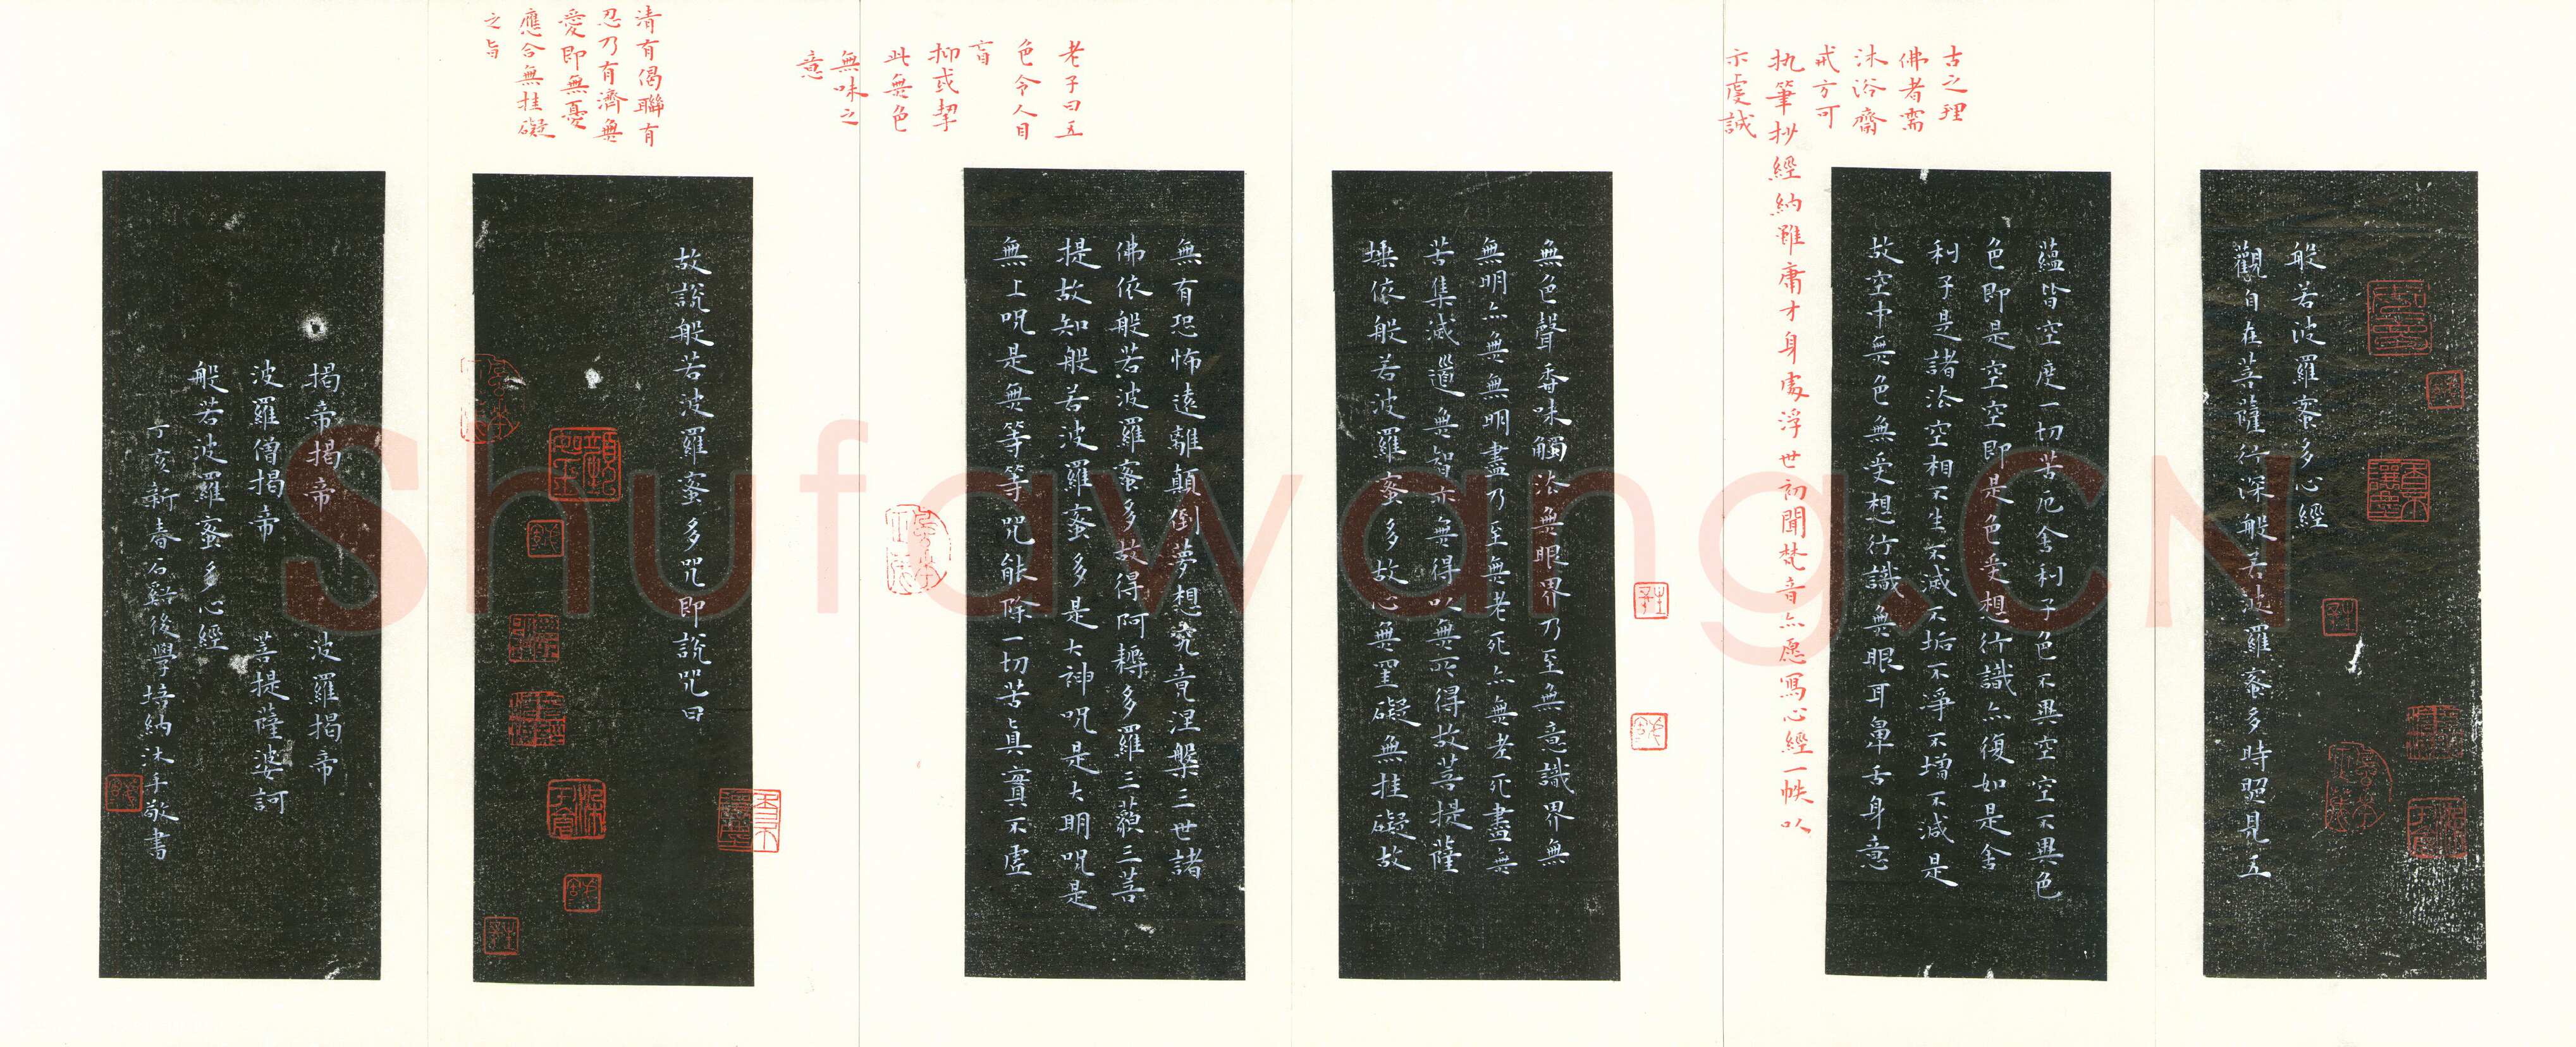 般若波羅蜜多心經
觀自在菩薩行深般若波羅蜜多時照見五
蘊皆空度一切苦厄舍利子色不異空空不異色
色即是空空即是色受想行識亦復如是舍
利子是諸法空相不生不滅不垢不淨不增不減是
故空中無色無受想行識無眼耳鼻舌身意
古之理
佛者需
沐浴齋
戒方可
執筆抄經納雖庸才身處浮世初聞梵音亦愿寫心經一帙以
示虔誠
無色聲香味觸法無眼界乃至無意識界無
無明亦無無明盡乃至無老死亦無老死盡無
苦集滅道無智亦無得以無所得故菩提薩
埵依般若波羅蜜多故心無罣礙無挂礙故
無有恐怖遠離顛倒夢想究竟涅槃三世諸
佛依般若波羅蜜多故得阿耨多羅三藐三菩
提故知般若波羅蜜多是大神呪是大明呪是
無上呪是無等等呪能除一切苦真實不虛
老子曰五
色令人目
盲
抑或挈
此無色
無味之
意
故說般若波羅蜜多咒即說咒曰
清有偈聯有
忍乃有濟無
愛即無憂
應合無挂礙
之旨
揭帝揭帝 波羅揭帝
波羅僧揭帝 菩提薩婆訶
般若波羅蜜多心經
丁亥新春石谿後學培納沐手敬書
Shufawang.CN